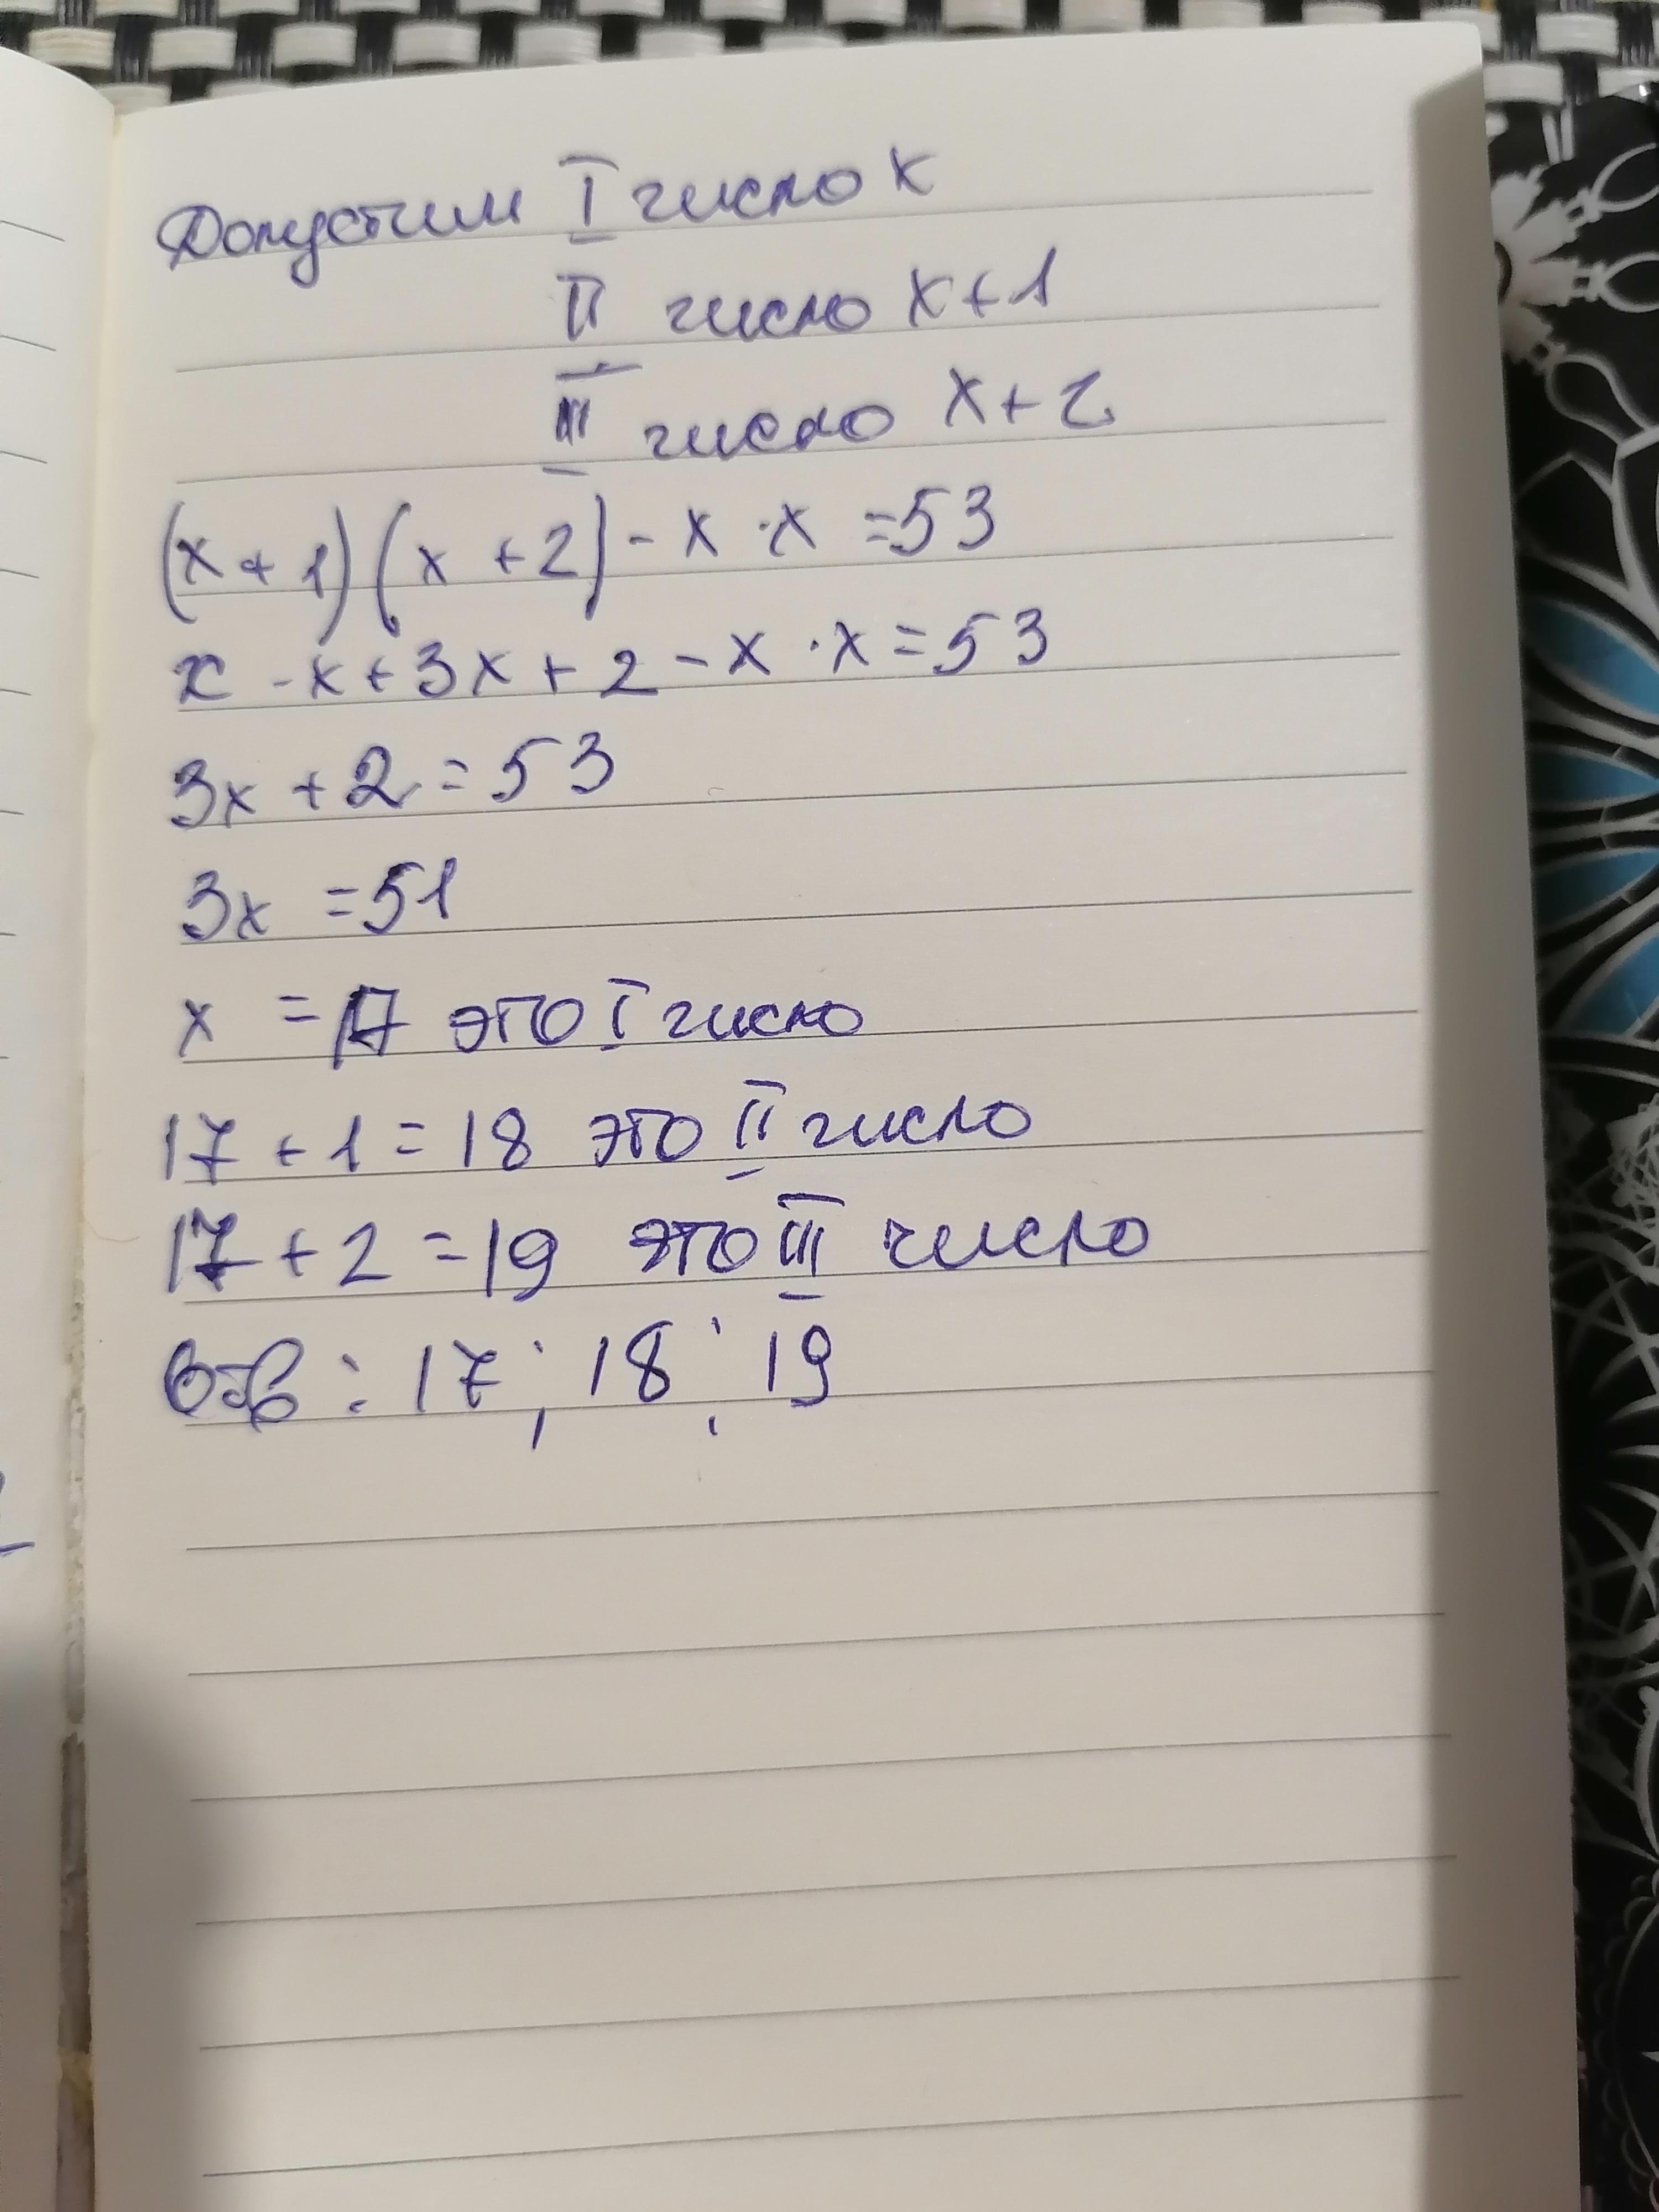 Допустим I число x
II число x+1
III число x+2
(x+1)(x+2)-x·x=53
x-x+3x+2-x·x=53
3x+2=53
3x=51
x=17 это I число
17+1=18 это II число
17+2=19 это III число
Отв: 17; 18; 19